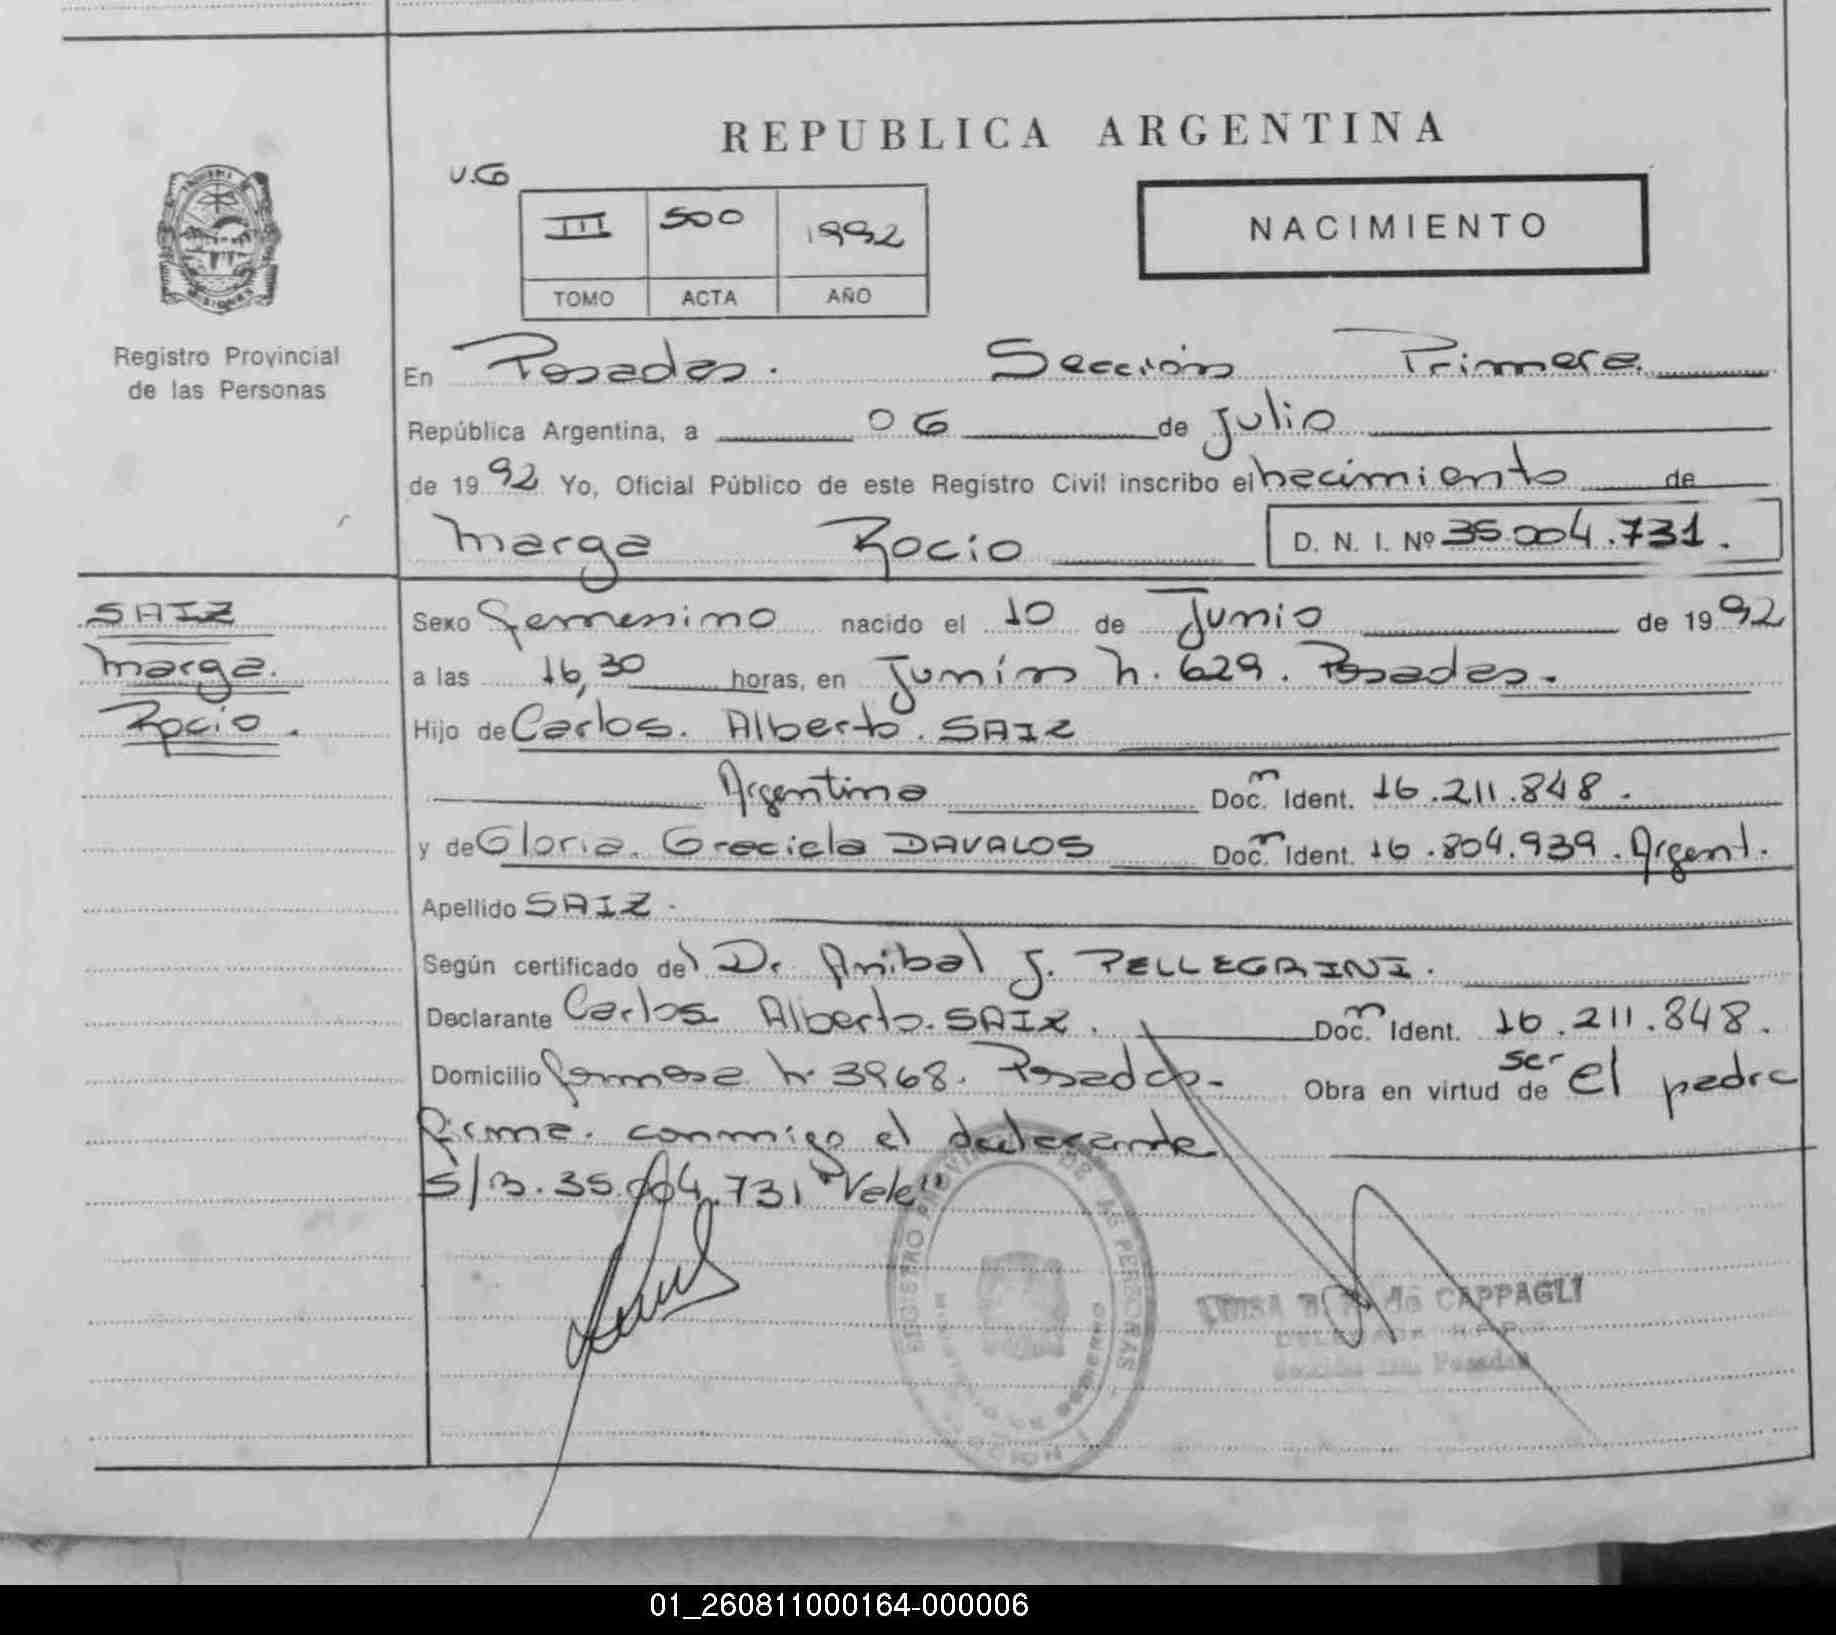 REPUBLICA ARGENTINA
U.G
III 500 1992
TOMO ACTA AÑO
NACIMIENTO
Registro Provincial
de las Personas
En Posadas. Sección Primera
República Argentina, a 06 de Julio
de 1992 Yo, Oficial Público de este Registro Civil inscribo el nacimiento de
Marga Rocio D. N. I. Nº 35.004.731.
SAIZ
Marga.
Rocio.
Sexo femenino nacido el 10 de Junio de 1992
a las 16,30 horas, en Junín n. 629. Posadas.
Hijo de Carlos. Alberto. SAIZ
Argentino Doc. Ident. 16.211.848.
y de Gloria. Graciela DAVALOS Doc. Ident. 16.804.939. Argent.
Apellido SAIZ.
Según certificado del Dr. Anibal J. PELLEGRINI.
Declarante Carlos Alberto. SAIZ. Doc. Ident. 16.211.848.
Domicilio formosa n. 3968. Posadas. Obra en virtud de ser el padre
firma. conmigo el declarante
S/B. 35.004.731 "Vale"
REGISTRO PROVINCIAL DE LAS PERSONAS
de CAPPAGLI
Posadas
01_260811000164-000006